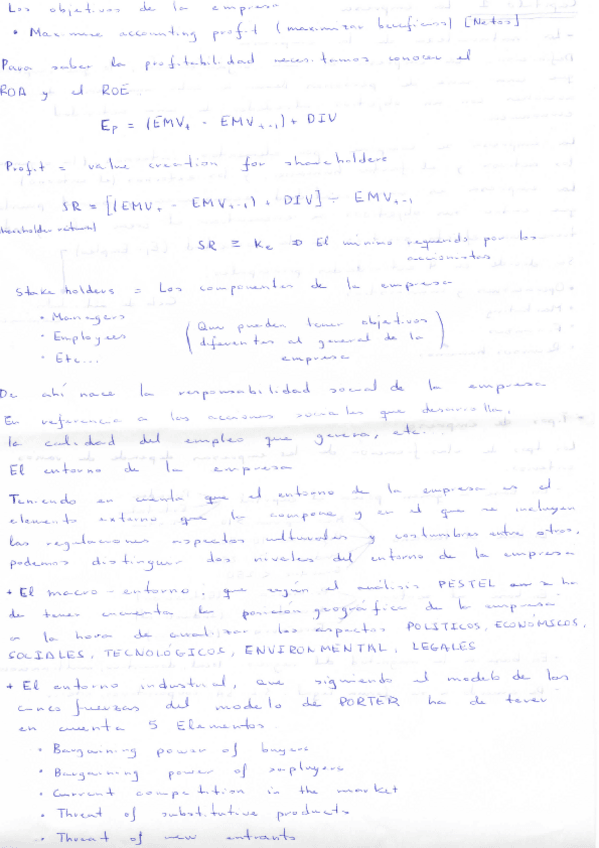 Los objetivos de la empresa
• Maximise accounting profit (maximizar beneficios) [Netos]
Para saber la profitabilidad necesitamos conocer el
ROA y el ROE.
Ep = (EMVt - EMVt-1) + DIV
Profit = value creation for shareholders
SR = [(EMVt - EMVt-1) + DIV] ÷ EMVt-1
shareholder return
SR ≅ Ke ⇒ El mínimo requerido por los
accionistas
Stakeholders = Los componentes de la empresa
• Managers
• Employees
• Etc...
(Que pueden tener objetivos
diferentes al general de la
empresa)
De ahí nace la responsabilidad social de la empresa
En referencia a las acciones sociales que desarrolla,
la calidad del empleo que genera, etc...
El entorno de la empresa
Teniendo en cuenta que el entorno de la empresa es el
elemento externo que la compone y en el que se incluyen
las regulaciones aspectos culturales y costumbres entre otros,
podemos distinguir dos niveles del entorno de la empresa
+ El macro-entorno, que según el análisis PESTEL se ha
de tener encuenta la posición geográfica de la empresa
a la hora de analizar los aspectos POLITICOS, ECONÓMICOS,
SOCIALES, TECNOLÓGICOS, ENVIRONMENTAL, LEGALES
+ El entorno industrial, que siguiendo el modelo de las
cinco fuerzas del modelo de PORTER ha de tener
en cuenta 5 Elementos
• Bargaining power of buyers
• Bargaining power of supluyers
• Current competition in the market
• Threat of substitutive products
• Threat of new entrants